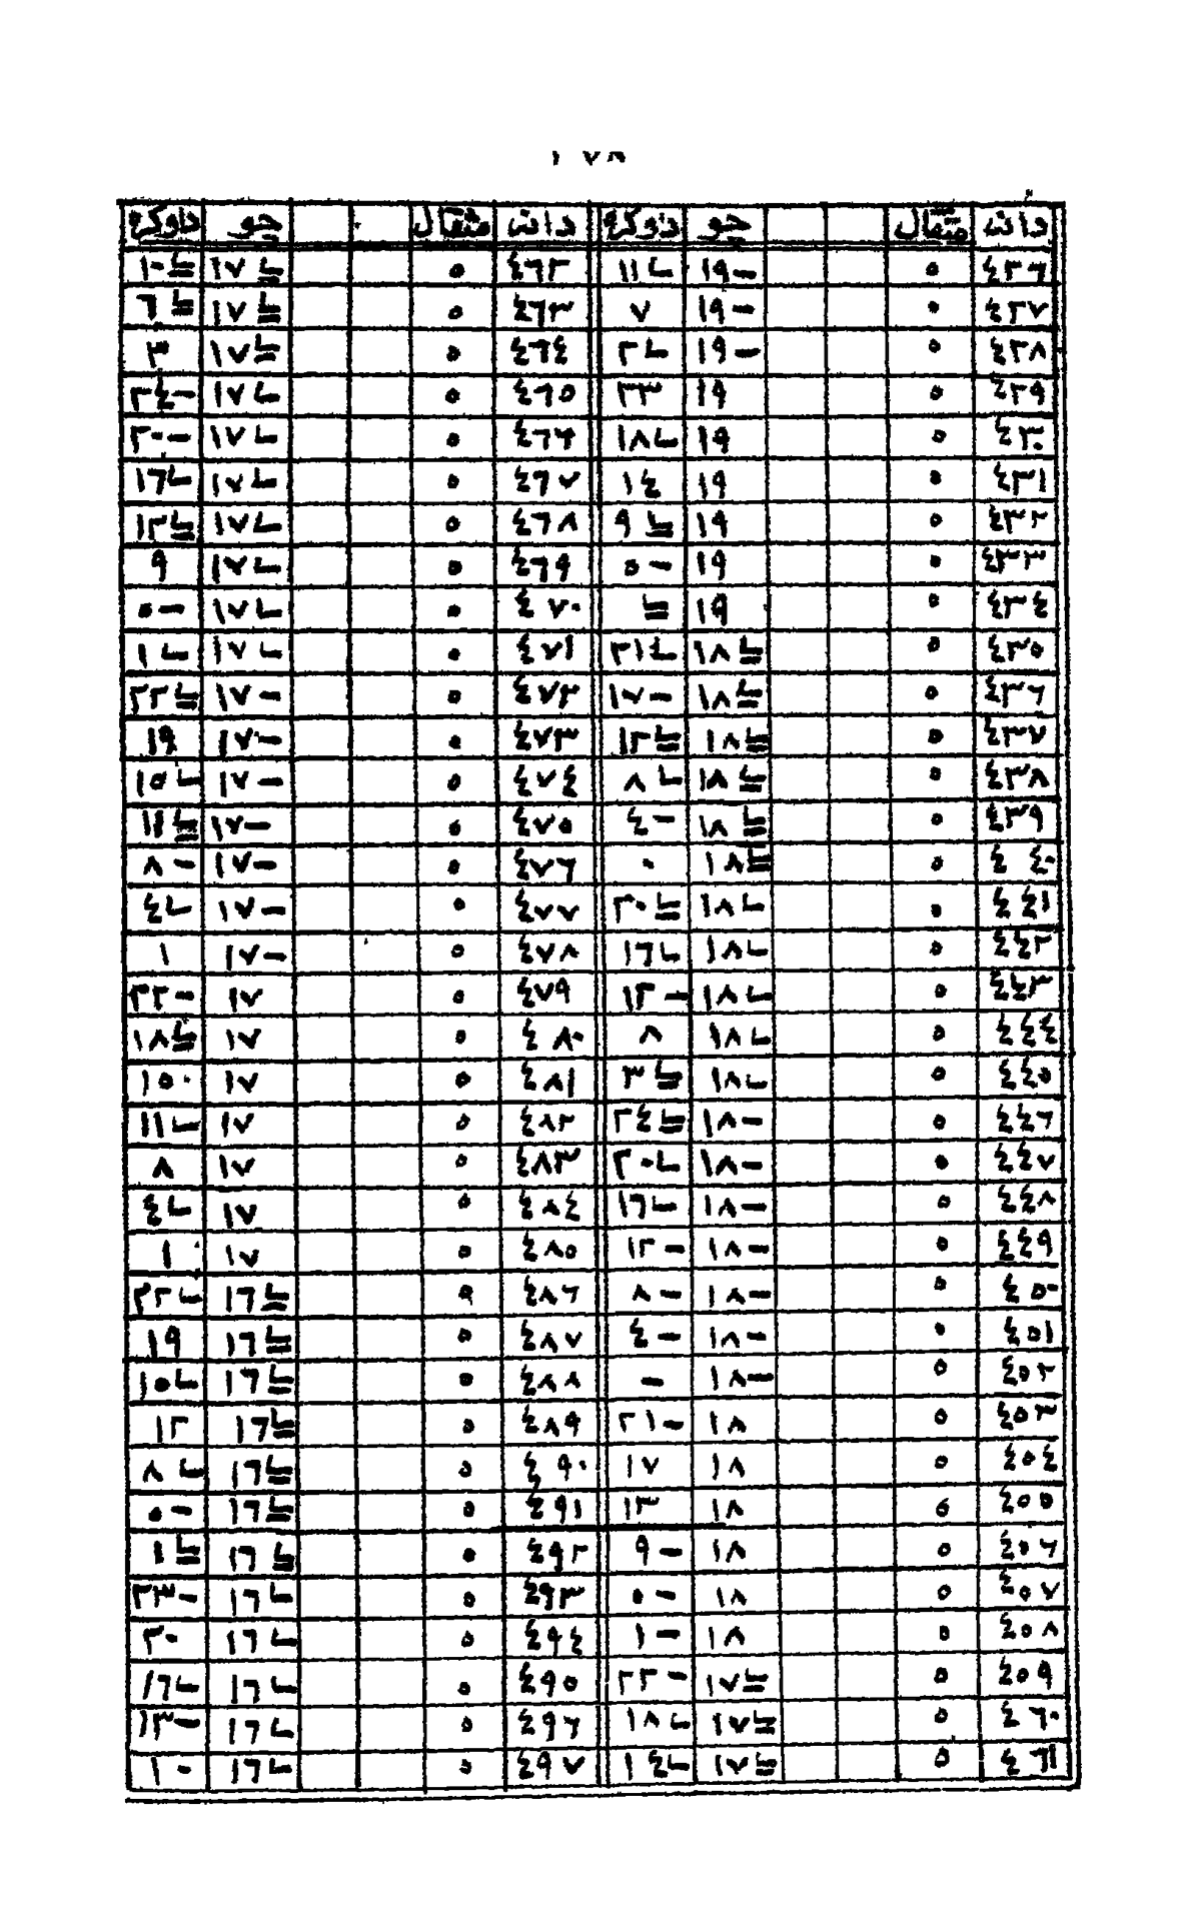 دانه مثقال جو دوكره دانه مثقال جو دوكره
٤٢٦ ٥ ١٩- ١١ـا ٤٦٢ ٥ ١٧ـا= ١٠ـا=
٤٢٧ ٥ ١٩- ٧ ٤٦٣ ٥ ١٧ـا= ٦ـا=
٤٢٨ ٥ ١٩- ٢ـا ٤٦٤ ٥ ١٧ـا= ٣
٤٢٩ ٥ ١٩ ٢٣ ٤٦٥ ٥ ١٧ـا ٢٤-
٤٣٠ ٥ ١٩ ١٨ـا ٤٦٦ ٥ ١٧ـا ٢٠-
٤٣١ ٥ ١٩ ١٤ ٤٦٧ ٥ ١٧ـا ١٦ـا
٤٣٢ ٥ ١٩ ٩ـا= ٤٦٨ ٥ ١٧ـا ١٢ـا=
٤٣٣ ٥ ١٩ ٥- ٤٦٩ ٥ ١٧ـا ٩
٤٣٤ ٥ ١٩ ـا= ٤٧٠ ٥ ١٧ـا ٥-
٤٣٥ ٥ ١٨ـا= ٢١ـا ٤٧١ ٥ ١٧ـا ١ـا
٤٣٦ ٥ ١٨ـا= ١٧- ٤٧٢ ٥ ١٧- ٢٢ـا=
٤٣٧ ٥ ١٨ـا= ١٢ـا= ٤٧٣ ٥ ١٧- ١٩
٤٣٨ ٥ ١٨ـا= ٨ـا ٤٧٤ ٥ ١٧- ١٥ـا
٤٣٩ ٥ ١٨ـا= ٤- ٤٧٥ ٥ ١٧- ١١ـا=
٤٤٠ ٥ ١٨ـا= ٠ ٤٧٦ ٥ ١٧- ٨-
٤٤١ ٥ ١٨ـا ٢٠ـا= ٤٧٧ ٥ ١٧- ٤ـا
٤٤٢ ٥ ١٨ـا ١٦ـا ٤٧٨ ٥ ١٧- ١
٤٤٣ ٥ ١٨ـا ١٢- ٤٧٩ ٥ ١٧ ٢٢-
٤٤٤ ٥ ١٨ـا ٨ ٤٨٠ ٥ ١٧ ١٨ـا=
٤٤٥ ٥ ١٨ـا ٣ـا= ٤٨١ ٥ ١٧ ١٥
٤٤٦ ٥ ١٨- ٢٤ـا= ٤٨٢ ٥ ١٧ ١١ـا
٤٤٧ ٥ ١٨- ٢٠ـا ٤٨٣ ٥ ١٧ ٨
٤٤٨ ٥ ١٨- ١٦ـا ٤٨٤ ٥ ١٧ ٤ـا
٤٤٩ ٥ ١٨- ١٢- ٤٨٥ ٥ ١٧ ١
٤٥٠ ٥ ١٨- ٨- ٤٨٦ ٥ ١٦ـا= ٢٢ـا
٤٥١ ٥ ١٨- ٤- ٤٨٧ ٥ ١٦ـا= ١٩
٤٥٢ ٥ ١٨- - ٤٨٨ ٥ ١٦ـا= ١٥ـا
٤٥٣ ٥ ١٨ ٢١- ٤٨٩ ٥ ١٦ـا= ١٢
٤٥٤ ٥ ١٨ ١٧ ٤٩٠ ٥ ١٦ـا= ٨ـا
٤٥٥ ٥ ١٨ ١٣ ٤٩١ ٥ ١٦ـا= ٥-
٤٥٦ ٥ ١٨ ٩- ٤٩٢ ٥ ١٦ـا= ١ـا=
٤٥٧ ٥ ١٨ ٥- ٤٩٣ ٥ ١٦ـا ٢٣-
٤٥٨ ٥ ١٨ ١- ٤٩٤ ٥ ١٦ـا ٢٠
٤٥٩ ٥ ١٧ـا= ٢٢- ٤٩٥ ٥ ١٦ـا ١٦ـا
٤٦٠ ٥ ١٧ـا= ١٨ـا ٤٩٦ ٥ ١٦ـا ١٣-
٤٦١ ٥ ١٧ـا= ١٤ـا ٤٩٧ ٥ ١٦ـا ١٠